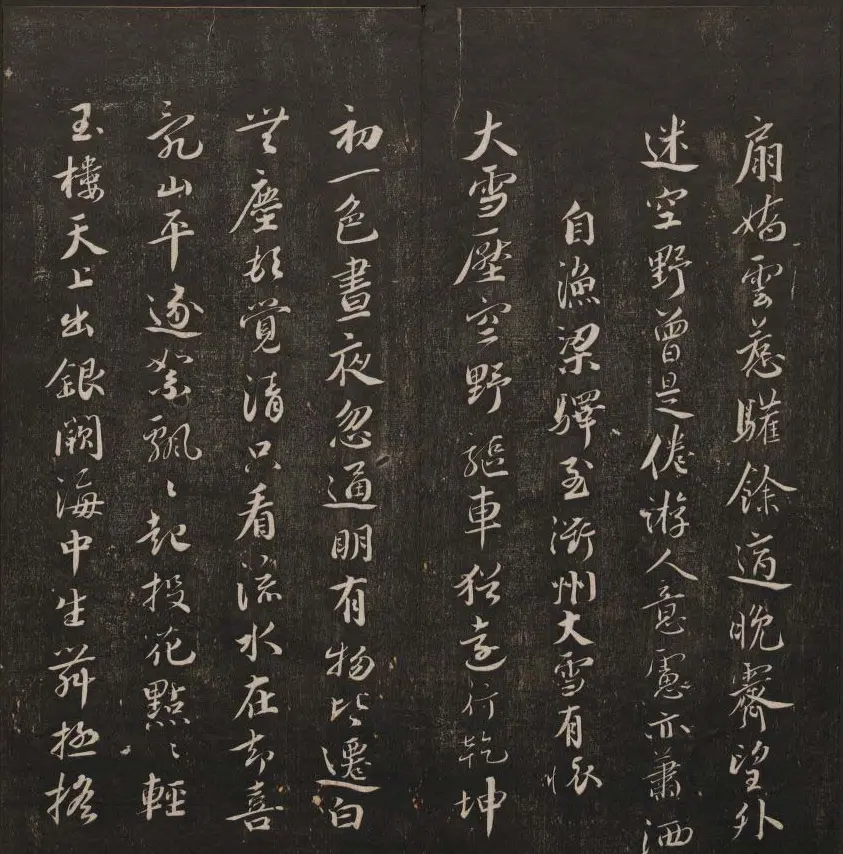 扇嬌雲惹驩餘適晚霽望外
迷空野曾是倦游人意慮亦蕭洒
自漁梁驛至衢州大雪有懷
大雪壓空野驅車猶遠行乾坤
初一色晝夜忽通明有物皆遷白
無塵頓覺清只看流水在却喜
亂山平逐絮飄〻起投花點〻輕
玉樓天上出銀闕海中生舞極搖